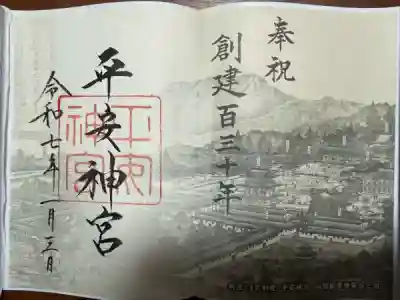 奉祝
創建百三十年
平安神宮
平安
神宮
令和七年一月三日